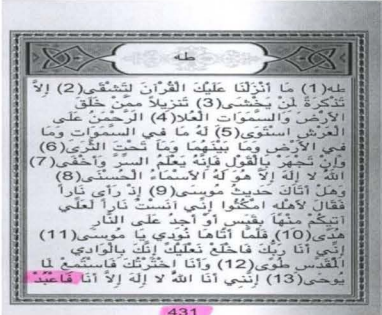 طه
طه(1) مَا أَنْزَلْنَا عَلَيْكَ الْقُرْآنَ لِتَشْقَى(2) إِلاَّ
تَذْكِرَةً لِمَنْ يَخْشَى(3) تَنزِيلاً مِمَّنْ خَلَقَ
الأَرْضَ وَالسَّمَوَاتِ الْعُلاَ(4) الرَّحْمَنُ عَلَى
الْعَرْشِ اسْتَوَى(5) لَهُ مَا فِي السَّمَوَاتِ وَمَا
فِي الأَرْضِ وَمَا بَيْنَهُمَا وَمَا تَحْتَ الثَّرَى(6)
وَإِنْ تَجْهَرْ بِالْقَوْلِ فَإِنَّهُ يَعْلَمُ السِّرَّ وَأَخْفَى(7)
اللَّهُ لاَ إِلَهَ إِلاَّ هُوَ لَهُ الأَسْمَاءُ الْحُسْنَى(8)
وَهَلْ أَتَاكَ حَدِيثُ مُوسَى(9) إِذْ رَأَى نَاراً
فَقَالَ لأَهْلِهِ امْكُثُوا إِنِّي آنَسْتُ نَاراً لَعَلِّي
آتِيكُمْ مِنْهَا بِقَبَسٍ أَوْ أَجِدُ عَلَى النَّارِ
هُدًى(10) فَلَمَّا أَتَاهَا نُودِيَ يَا مُوسَى(11)
إِنِّي أَنَا رَبُّكَ فَاخْلَعْ نَعْلَيْكَ إِنَّكَ بِالْوَادِي
الْمُقَدَّسِ طُوًى(12) وَأَنَا اخْتَرْتُكَ فَاسْتَمِعْ لِمَا
يُوحَى(13) إِنَّنِي أَنَا اللَّهُ لاَ إِلَهَ إِلاَّ أَنَا فَاعْبُدْ
431